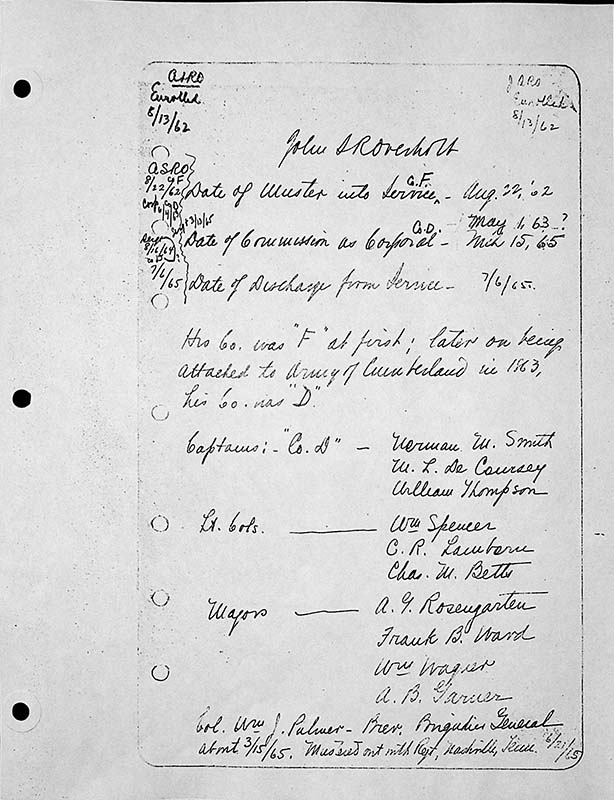 ASRO
Enrolled
8/13/62
J ARO
Enrolled
8/13/62
John SR Overholt
ASRO
8/22/62
Date of Muster into Service C.F. - Aug. 22, '62
Corp.
Date of Commission as Corporal Co. D. - May 1, 63-?
Mch 15, 65
Sergt
8/16/64
7/6/65
Date of Discharge from Service - 7/6/65.
His Co. was "F" at first; later on being
attached to Army of Cumberland in 1863,
his Co. was "D".
Captains:- "Co. D" - Norman M. Smith
M. L. De Coursey
William Thompson
Lt. Cols. — Wm Spencer
C. R. Lamborn
Chas. M. Betts
Majors — A. G. Rosengarten
Frank B. Ward
Wm Wagner
A. B. Garner
Col. Wm J. Palmer - Brev. Brigadier General
about 3/15/65. Mustered out with Regt, Nashville, Tenn. 6/21/65